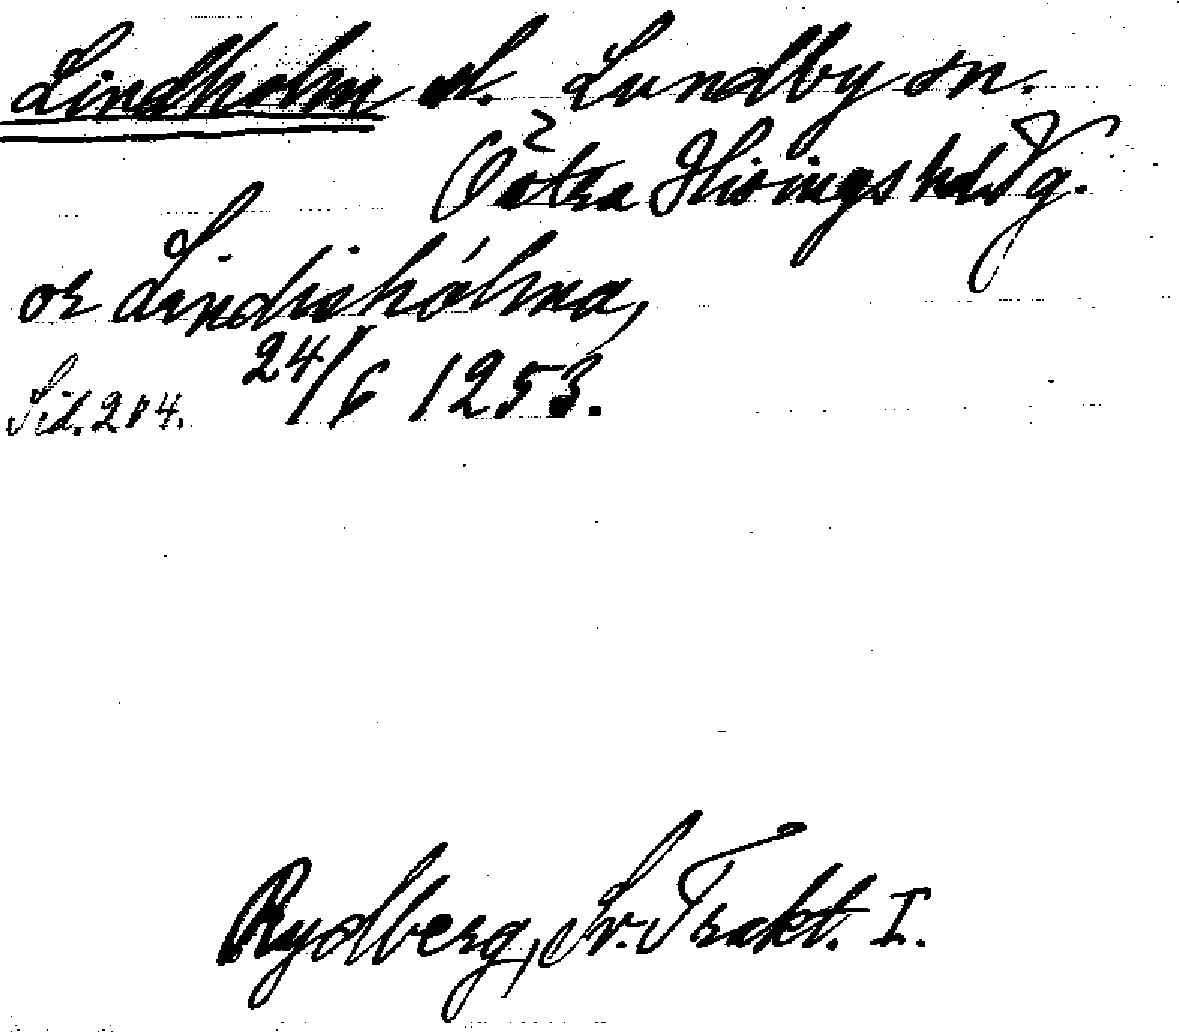 Lindholm sl. Lundby sn.
Östra Hisings hd Vg.
or Lindisholma,
24/6 1253.
Sid. 204.
Rydberg, Sv. Trakt. I.